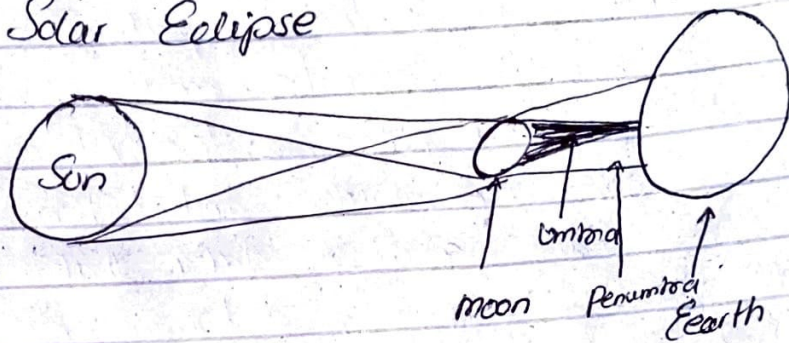 Solar Eclipse
Sun
Umbra
moon
Penumbra
Eearth